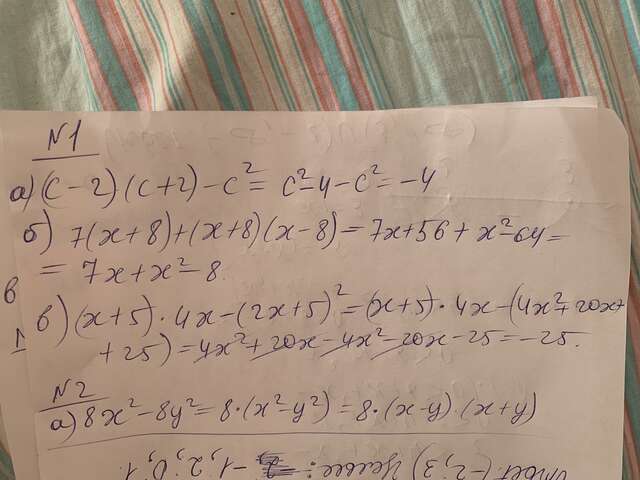 N1
а) (c-2)(c+2)-c²= c²-4-c²=-4
б) 7(x+8)+(x+8)(x-8)=7x+56+x²-64=
= 7x+x²-8.
в
в) (x+5)·4x-(2x+5)²=(x+5)·4x-(4x²+20x+
1
+25)=4x²+20x-4x²-20x-25=-25.
N2
а) 8x²-8y²=8·(x²-y²)=8·(x-y)·(x+y)
Ответ: (-2;3) Целые: -1; 2; 0; 1.